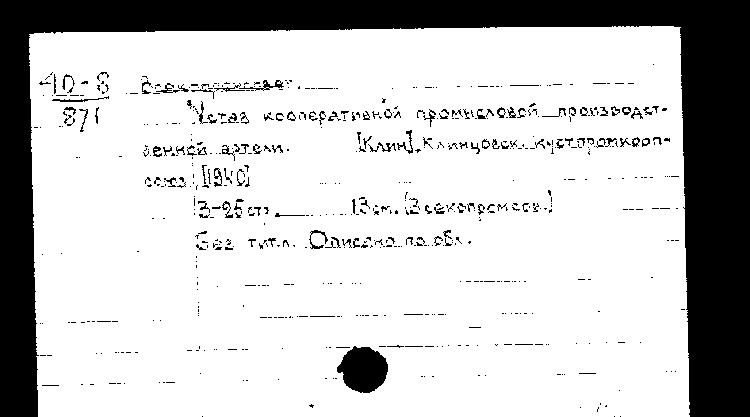 40-8 Всекопромсовет.
871 Устав кооперативной промысловой производст-
венной артели. [Клин], Клинцовск. кустпромкооп-
союз, [1940]
3-25 стр. 13 см. (Всекопромсов.)
Без тит.л. Описано по обл.